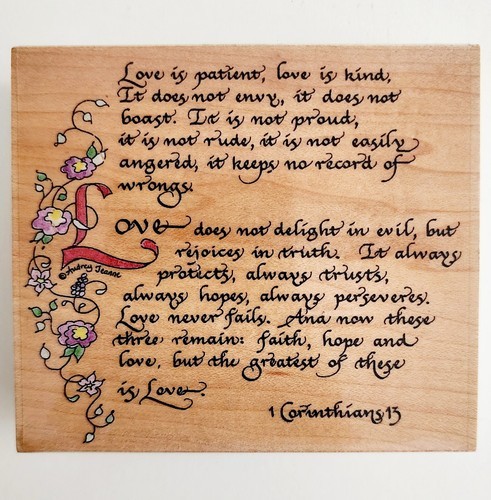 Love is patient, love is kind,
It does not envy, it does not
boast. It is not proud,
it is not rude, it is not easily
angered, it keeps no record of
wrongs.
Love does not delight in evil, but
rejoices in truth. It always
protects, always trusts,
always hopes, always perseveres.
Love never fails. And now these
three remain: faith, hope and
love, but the greatest of these
is Love.
1 Corinthians 13
©Audrey Jeanne